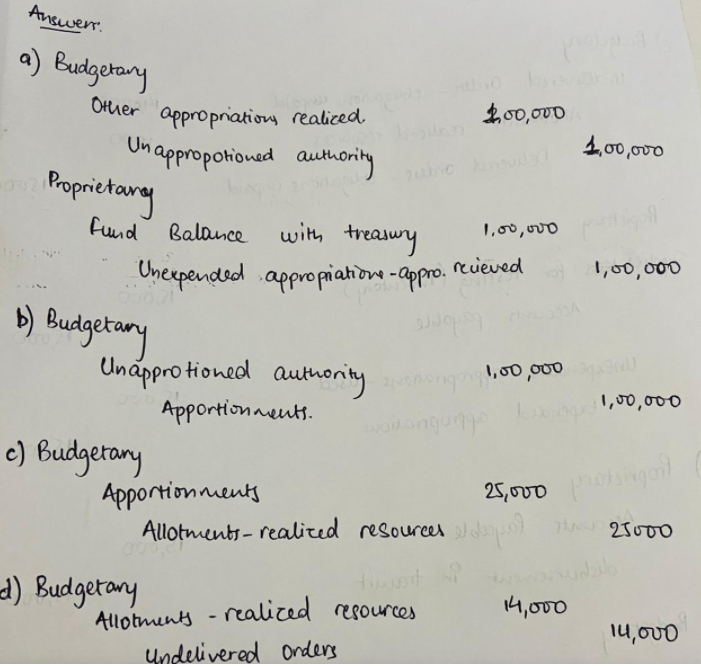 Answer:
a) Budgetary
Other appropriations realized. 1,00,000
Unappropotioned authority 1,00,000
Proprietary
Fund Balance with treasury 1,00,000
Unexpended appropiations - appro. recieved 1,00,000
b) Budgetary
Unapprotioned authority 1,00,000
Apportionments. 1,00,000
c) Budgetary
Apportionments 25,000
Allotments - realized resources 25000
d) Budgetary
Allotments - realized resources 14,000
Undelivered orders 14,000